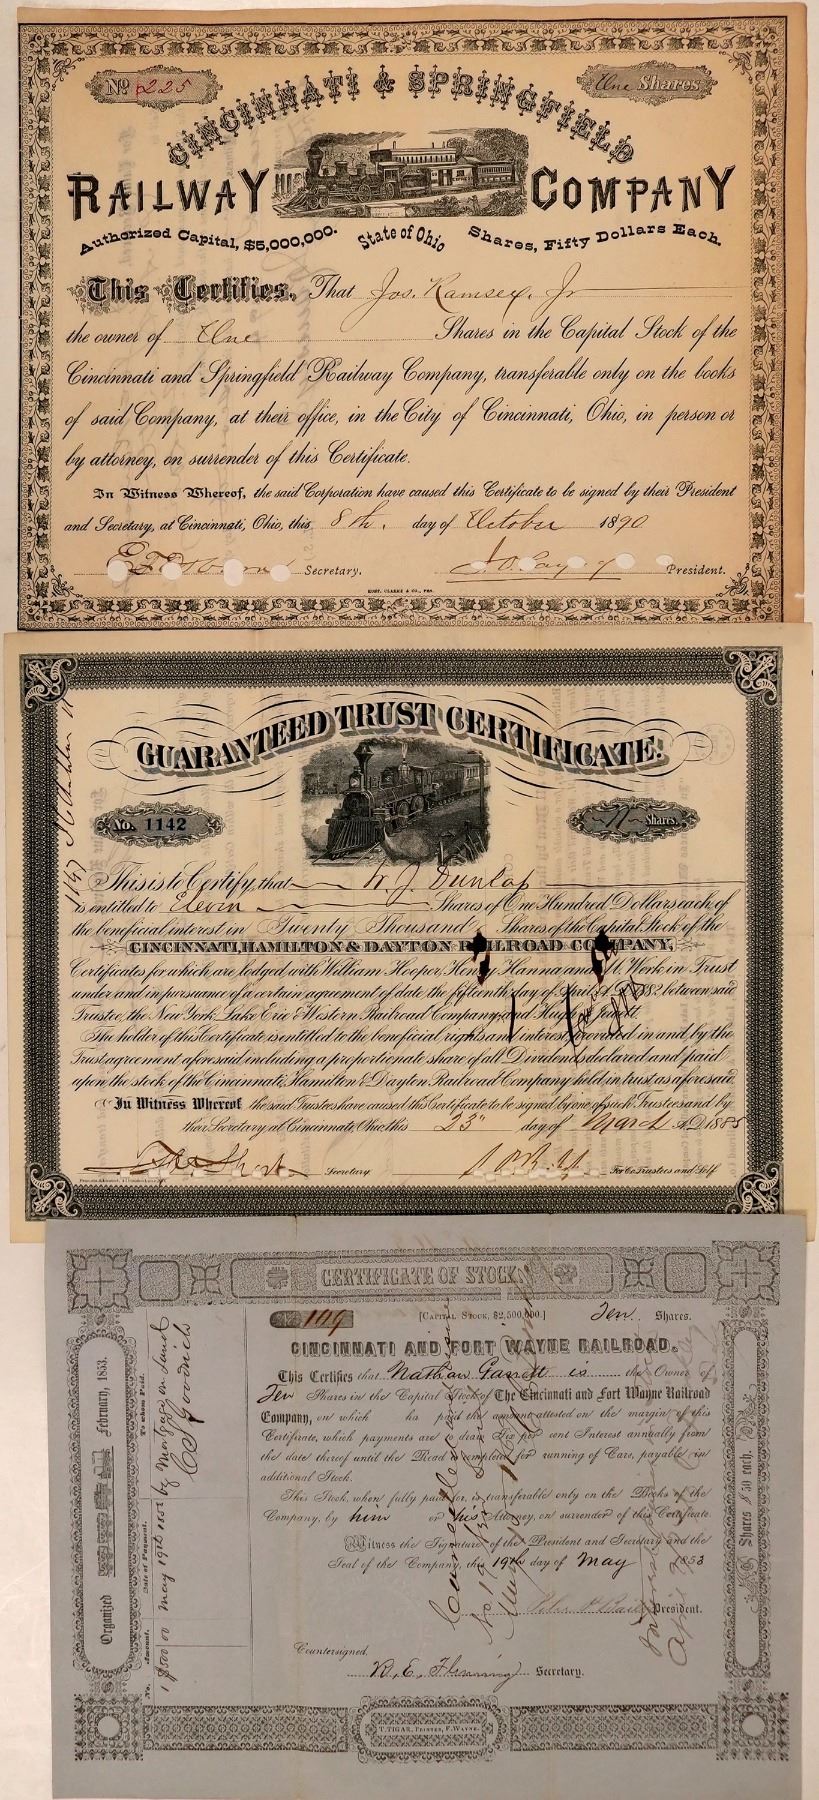 No 225
One Shares
CINCINNATI & SPRINGFIELD
RAILWAY COMPANY
Authorized Capital, $5,000,000. State of Ohio Shares, Fifty Dollars Each.
This Certifies, That Jos. Ramsey, Jr
the owner of One Shares in the Capital Stock of the
Cincinnati and Springfield Railway Company, transferable only on the books
of said Company, at their office, in the City of Cincinnati, Ohio, in person or
by attorney, on surrender of this Certificate.
In Witness Whereof, the said Corporation have caused this Certificate to be signed by their President
and Secretary, at Cincinnati, Ohio, this 8th. day of October 1890
Secretary. President.
GUARANTEED TRUST CERTIFICATE.
No. 1142
11 Shares.
This is to Certify, that W. J. Dunlap
is entitled to Eleven Shares of One Hundred Dollars each of
the beneficial interest in Twenty Thousand Shares of the Capital Stock of the
CINCINNATI, HAMILTON & DAYTON RAILROAD COMPANY,
Certificates for which are lodged with William Hooper, Henry Hanna and Work in Trust
under and in pursuance of a certain agreement of date the fifteenth day of April A.D. 1882 between said
Trustee, the New York Lake Erie & Western Railroad Company and Hugh J. Jewett.
The holder of this Certificate is entitled to the beneficial rights and interest provided in and by the
Trust agreement aforesaid including a proportionate share of all Dividends declared and paid
upon the stock of the Cincinnati, Hamilton & Dayton Railroad Company held in trust as aforesaid.
In Witness Whereof the said Trustees have caused this Certificate to be signed by one of such Trustees and by
their Secretary at Cincinnati, Ohio, this 23" day of March A.D. 1885
Secretary For Co Trustees and Self
CERTIFICATE OF STOCK.
[CAPITAL STOCK, $2,500,000.] Ten Shares.
CINCINNATI AND FORT WAYNE RAILROAD.
This Certifies that Nathan Garrett is the Owner of
Ten Shares in the Capital Stock of The Cincinnati and Fort Wayne Railroad
Company, on which ha paid the amount attested on the margin of this
Certificate, which payments are to draw Six per cent Interest annually from
the date thereof until the Road is completed for running of Cars, payable in
additional Stock.
This Stock, when fully paid for, is transferable only on the Books of the
Company, by him or his Attorney, on surrender of this Certificate.
Witness the Signature of the President and Secretary and the
Seal of the Company, this 19th day of May 1853
President.
Countersigned,
R. E. Flemming Secretary.
T. TIGAR, PRINTER, F. WAYNE.
Organized February, 1853.
No. Amount. Date of Payment. To whom Paid.
1 $500 00 May 19th 1852 by Mortgage on Land
Shares $50 each.